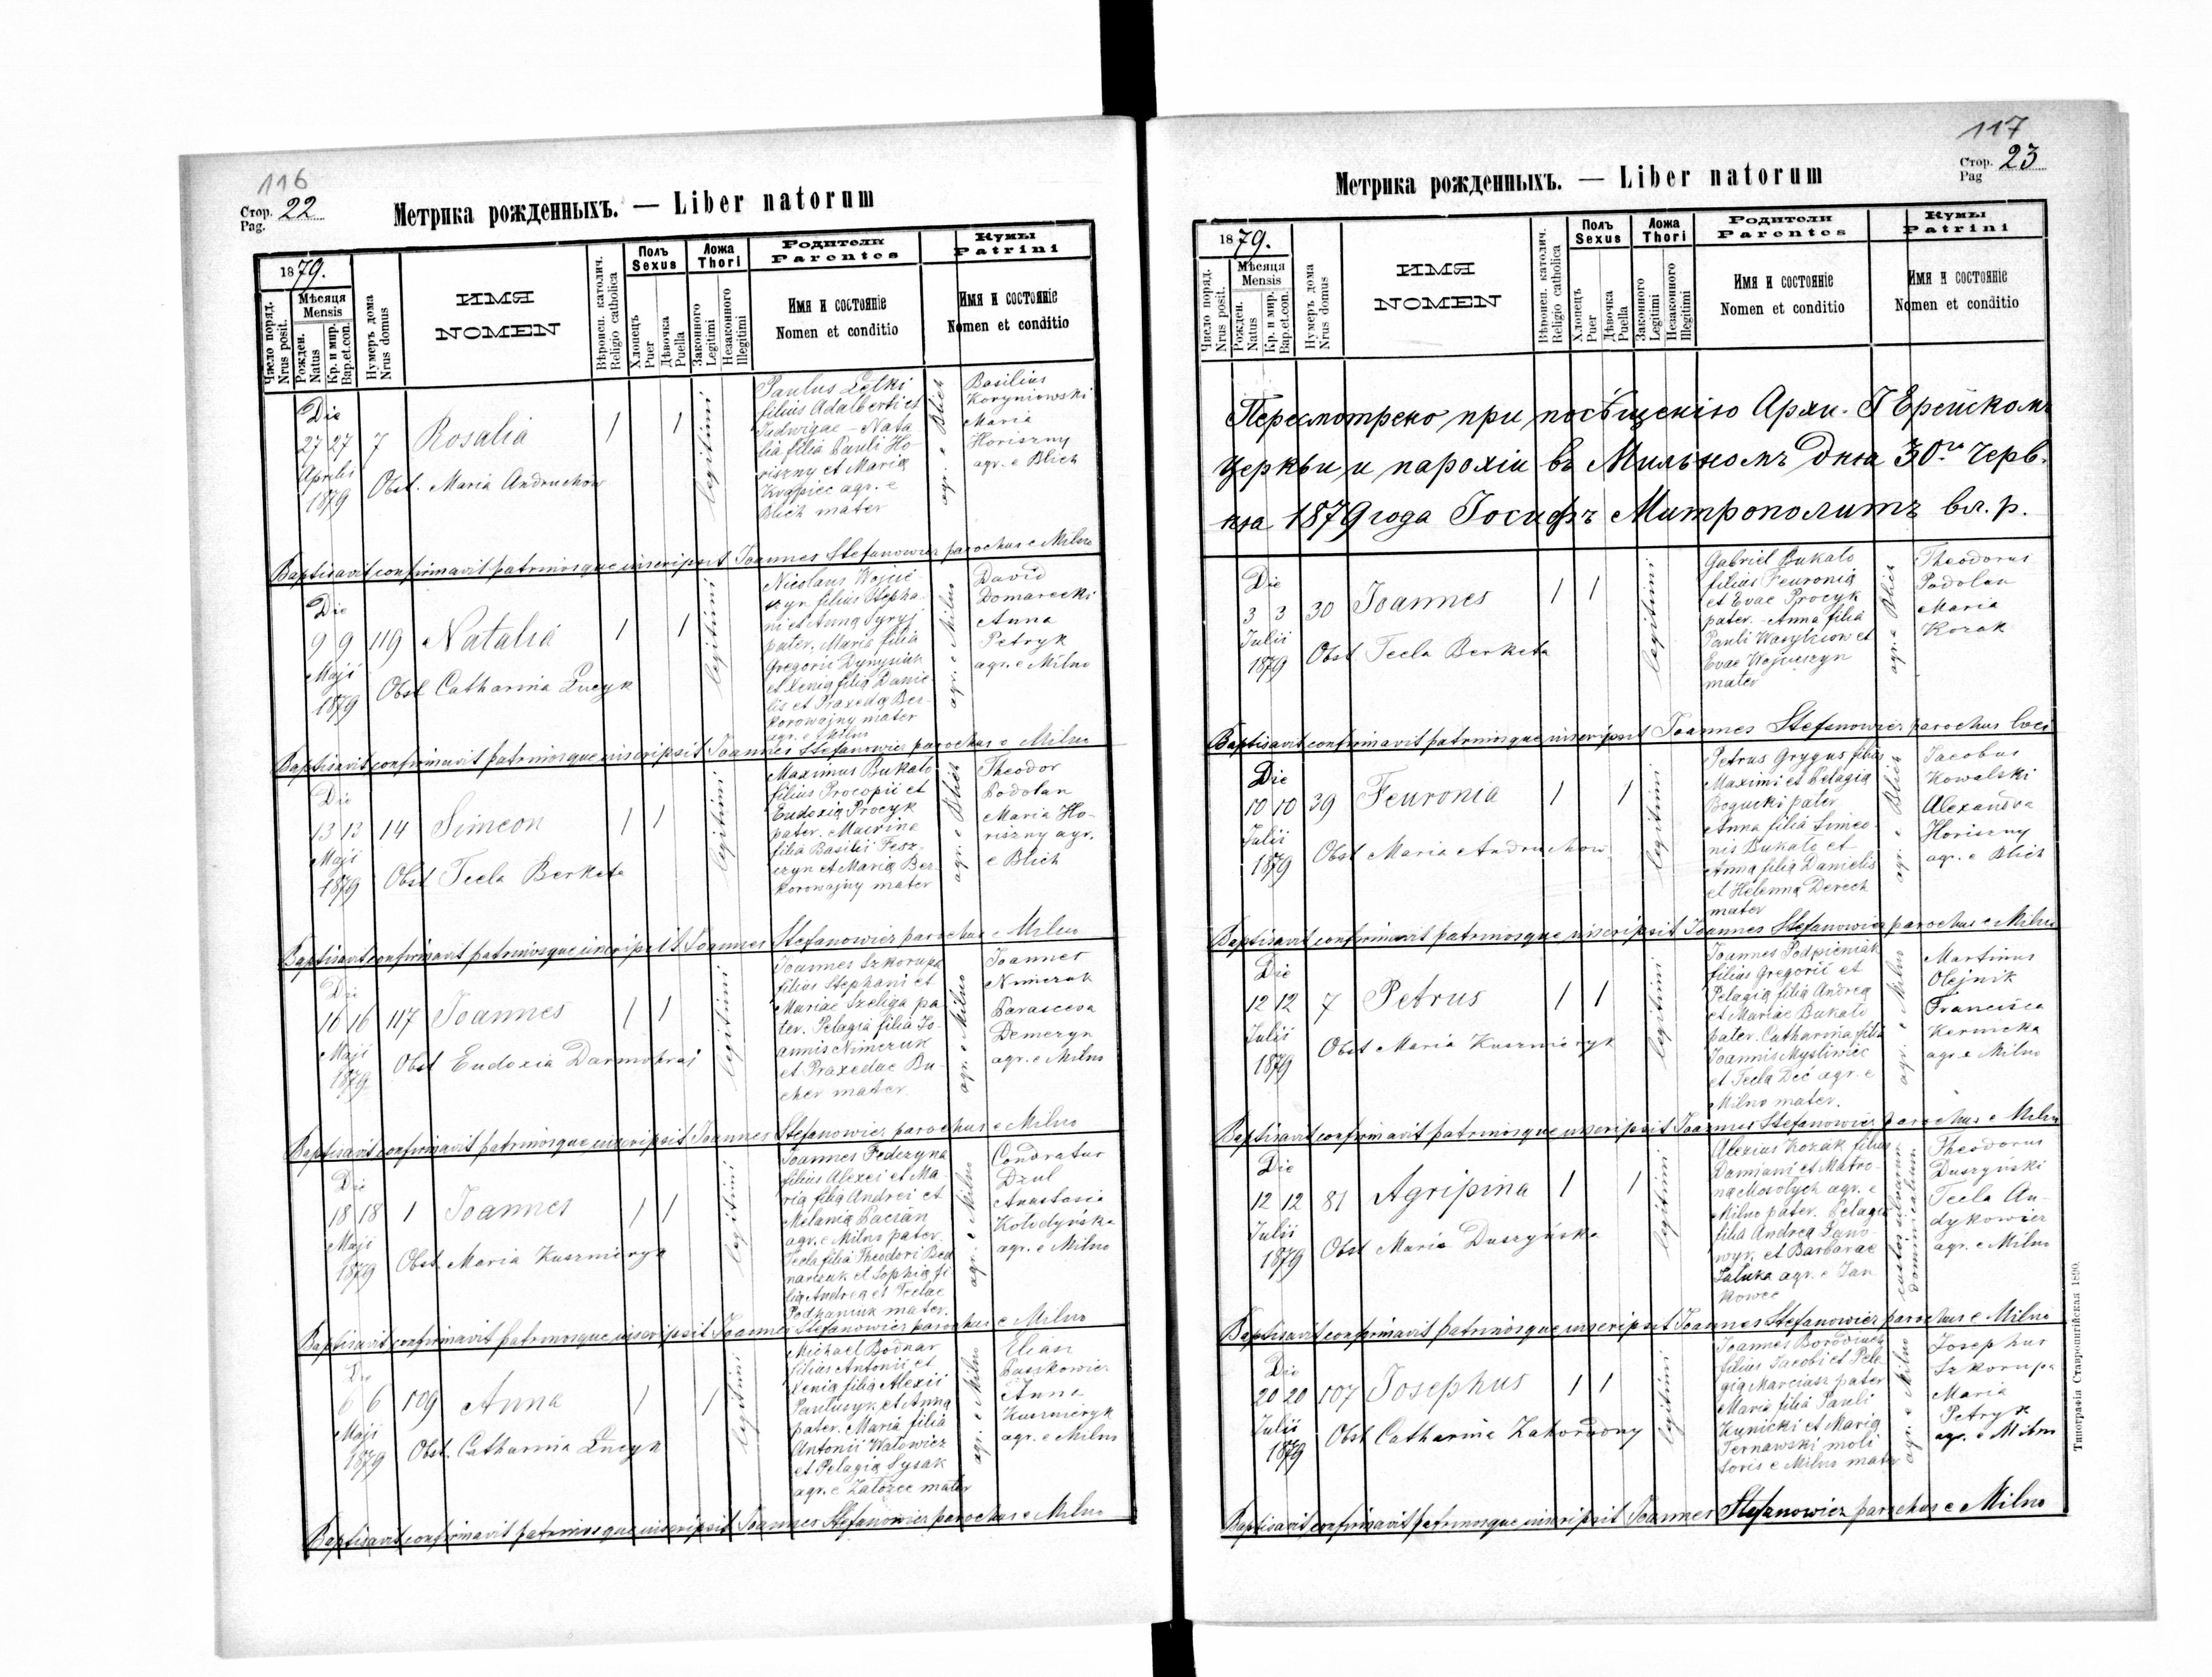 116
Стор. 22
Pag.
Метрика рожденныхъ. — Liber natorum
1879.
Число поряд.
Nrus posit.
Мѣсяця
Mensis
Рожден.
Natus
Кр. и мир.
Bap.et.con.
Нумеръ дома
Nrus domus
ИМЯ
NOMEN
Вѣроисп. католич.
Religio catholica
Полъ
Sexus
Хлопецъ
Puer
Дѣвочка
Puella
Ложа
Thori
Законного
Legitimi
Незаконного
Illegitimi
Родители
Parentes
Имя и состояніе
Nomen et conditio
Кумы
Patrini
Имя и состояніе
Nomen et conditio
Die
27 27 7 Rosalia 1 1
Aprilis
1879
Obst. Maria Andruchów
legitimi
Paulus Letki
filius Adalberti et
Jadwigae - Nata
lia filia Pauli Ho
riszny et Maria
agr. e
Blich mater
agr. e Blich
Basilius
Koryniowski
Maria
Horiszny
agr. e Blich
Baptisavit confirmavit patrinosque inscripsit Joannes Stefanowicz parochus e Milno
Die
9 9 119 Natalia 1 1
Maji
1879
Obst Catharina Łucyk
legitimi
Nicolaus Wojci
szyn filius Stepha
ni et Anna Syryj
pater. Maria filia
Gregorii Dynysiuk
et Xenia filia Danie
lis et Praxeda Ber
korowajny mater
agr. e Milno
agr. e Milno
David
Domarecki
Anna
Petryk
agr. e Milno
Baptisavit confirmavit patrinosque inscripsit Joannes Stefanowicz parochus e Milno
Die
13 13 14 Simeon 1 1
Maji
1879
Obst Tecla Berketa
legitimi
Maximus Bukało
filius Procopii et
Eudoxia Procyk
pater. Maurine
filia Basilii Fesz
czyn et Maria Ber
korowajny mater
agr. e Blich
Theodor
Podolan
Maria Ho-
riszny agr.
e Blich
Baptisavit confirmavit patrinosque inscripsit Joannes Stefanowicz parochus e Milno
Die
16 16 117 Joannes 1 1
Maji
1879
Obst Eudoxia Darmohraj
legitimi
Joannes Szkorupa
filius Stephani et
Mariae Szeliga pa
ter. Pelagia filia Jo-
annis Nimczuk
et Praxedae Bu
cher mater
agr. e Milno
Joannes
Nimczuk
Parasceva
Demczyn
agr. e Milno
Baptisavit confirmavit patrinosque inscripsit Joannes Stefanowicz parochus e Milno
Die
18 18 1 Joannes 1 1
Maji
1879
Obst Maria Kuszniryk
legitimi
Joannes Federyna
filius Alexei et Ma
ria filia Andrei et
Melania Pacian
agr. e Milno pater.
Tecla filia Theodori Bed
narczuk et Sophia fi
lia Andrea et Teclae
Podhaniuk mater.
agr. e Milno
Condratus
Dzul
Anastasia
Kołodyńska
agr. e Milno
Baptisavit confirmavit patrinosque inscripsit Joannes Stefanowicz parochus e Milno
Die
6 6 109 Anna 1 1
Maji
1879
Obst. Catharina Łucyk
legitimi
Michael Bodnar
filius Antonii et
Xenia filia Alexii
Pantusyk et Anna
pater. Maria filia
Antonii Watowicz
et Pelagia Sysak
agr. e Załoźce mater
agr. e Milno
Elias
Paszkowicz
Anna
Kuszniryk
agr. e Milno
Baptisavit confirmavit patrinosque inscripsit Joannes Stefanowicz parochus e Milno
117
Стор. 23
Pag
Метрика рожденныхъ. — Liber natorum
1879.
Число поряд.
Nrus posit.
Мѣсяця
Mensis
Рожден.
Natus
Кр. и мир.
Bap.et.con.
Нумеръ дома
Nrus domus
ИМЯ
NOMEN
Вѣроисп. католич.
Religio catholica
Полъ
Sexus
Хлопецъ
Puer
Дѣвочка
Puella
Ложа
Thori
Законного
Legitimi
Незаконного
Illegitimi
Родители
Parentes
Имя и состояніе
Nomen et conditio
Кумы
Patrini
Имя и состояніе
Nomen et conditio
Пересмотрено при посѣщенію Архи-Іерейскомъ
Церкви и парохіи въ Мильномъ дня 30го Черв.
ня 1879 года Іосифъ Митрополитъ вл. р.
Die
3 3 30 Joannes 1 1
Julii
1879
Obst Tecla Berketa
legitimi
Gabriel Bukało
filius Feuronia
et Evae Procyk
pater. - Anna filia
Pauli Wasylkow et
Evae Wojciszyn
mater
agr. e Blich
Theodorus
Podolan
Maria
Kozak
Baptisavit confirmavit patrinosque inscripsit Joannes Stefanowicz parochus loci
Die
10 10 39 Feuronia 1 1
Julii
1879
Obst Maria Andruchow
legitimi
Petrus Grygus filius
Maximi et Pelagia
Bogucki pater
Anna filia Simeo
nis Bukało et
Anna filia Danielis
et Helenna Derech
mater
agr. e Blich
Jacobus
Kowalski
Alexandra
Horiszny
agr. e Blich
Baptisavit confirmavit patrinosque inscripsit Joannes Stefanowicz parochus e Milno
Die
12 12 7 Petrus 1 1
Julii
1879
Obst Maria Kuszniryk
legitimi
Joannes Podpieniak
filius Gregorii et
Pelagia filia Andrea
et Mariae Bukało
pater. Catharina filia
Joannis Mysliwiec
et Tecla Deć agr. e
Milno mater.
agr. e Milno
Martinus
Olejnik
Francisca
Kernicka
agr. e Milno
Baptisavit confirmavit patrinosque inscripsit Joannes Stefanowicz parochus e Milno
Die
12 12 81 Agripina 1 1
Julii
1879
Obst Maria Duszyńska
legitimi
Alexius Kozak filius
Damiani et Matro-
na Mosolych agr. e
Milno pater. Pelagia
filia Andrea Zano-
wyk et Barbarae
Załuka agr. e Jan
kowce
custos silvarum
dominicalium
Theodorus
Duszyński
Tecla An-
dykowicz
agr. e Milno
Baptisavit confirmavit patrinosque inscripsit Joannes Stefanowicz parochus e Milno
Die
20 20 107 Josephus 1 1
Julii
1879
Obst Catharina Zahorodny
legitimi
Joannes Borodiuch
filius Jacobi et Pele
gia Marciasz pater
Maria filia Pauli
Kunicki et Maria
Ternawski moli
toris e Milno mater
agr. e Milno
Josephus
Szkorupa
Maria
Petryk
agr. e Milno
Baptisavit confirmavit patrinosque inscripsit Joannes Stefanowicz parochus e Milno
Типографія Ставропигійская 1890.